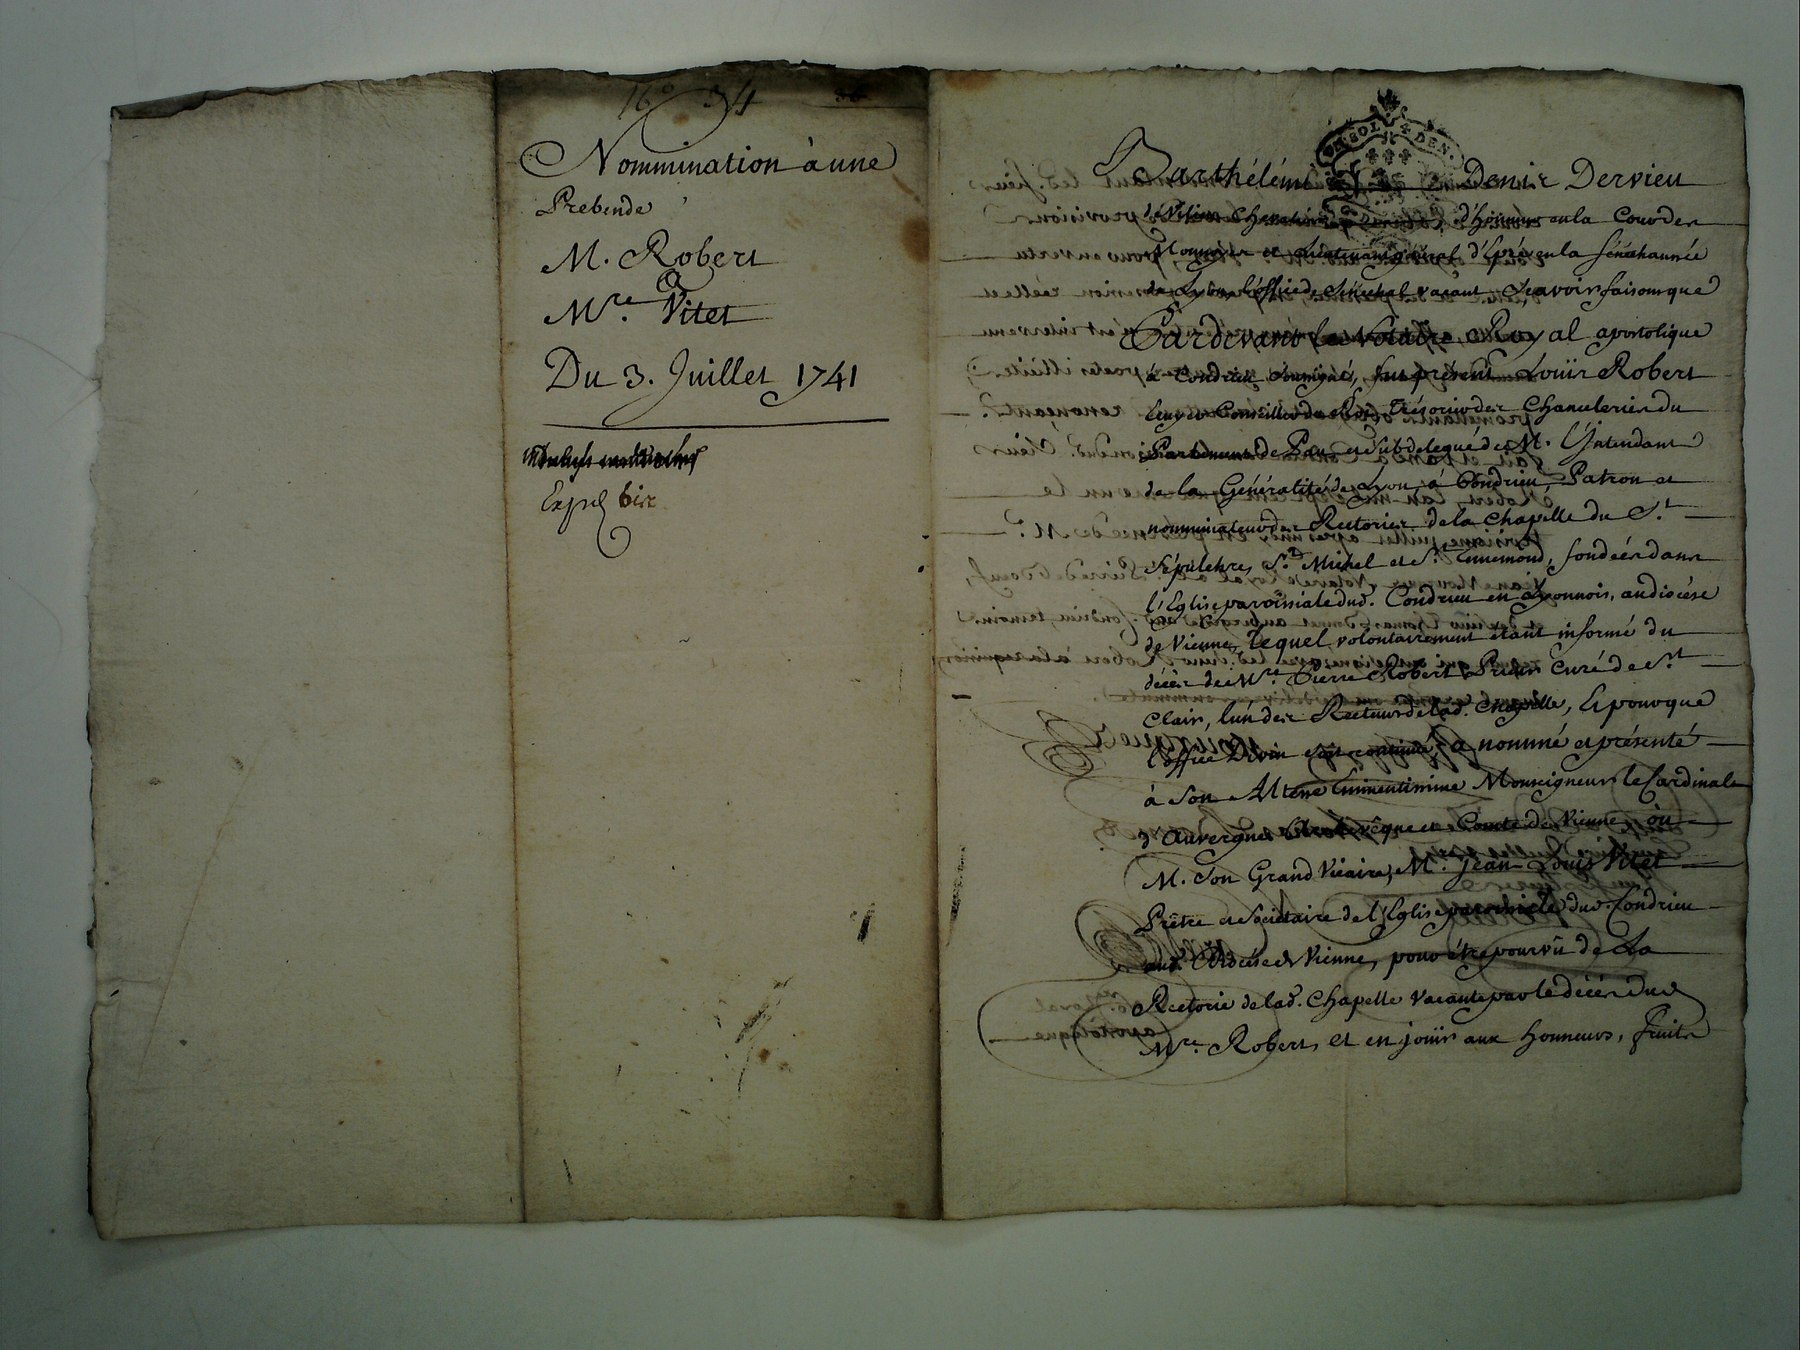 16° 34
Nommination à une
Prebende
M. Robert
à
Mre. Vitet
Du 3. Juillet 1741
Expd. bis
SOLS DEN.
Barthélémi Denis Dervieu
de Chevalier d'honneur en la Cour des
Monnoyes et Lieutenant général d'Epée en la Sénéchaussée
de Lyon, l'office de Sénéchal vacant Sçavoir faisons que
Pardevant le Notaire Royal apostolique
à Condrieu soussigné, fut présent Loüis Robert
Ecuyer Conseiller du Roi Trésorier des Chanceleries du
Parlement de Pau et Subdelegué de M. l'Intendant
de la Généralité de Lyon, à Condrieu, Patron et
nominateur des Rectories de la Chapelle du St.
Sépulchre, St. Michel et St. Ennemond, fondées dans
l'Eglise paroissiale dud. Condrieu en Lyonnois, au diocése
de Vienne, lequel volontairement étant informé du
décès de Mre. Pierre Robert Prieur Curé de St.
Clair, l'un des Recteurs de lad. Chapelle, Et pour que
l'office Divin soit continué, a nommé et présenté
à Son Altesse Eminentissime Monseigneur le Cardinal
d'Auvergne Archevêque et Comte de Vienne, où
M. Son Grand Vicaire, Mre. Jean Louis Vitet
Prêtre et Sociétaire de l'Eglise paroissiale dud. Condrieu
aud. Diocése de Vienne, pour être pourvû de La
Rectorie de lad. Chapelle vacante par le décès dud.
Mre. Robert, et en joüir aux honneurs, fruits